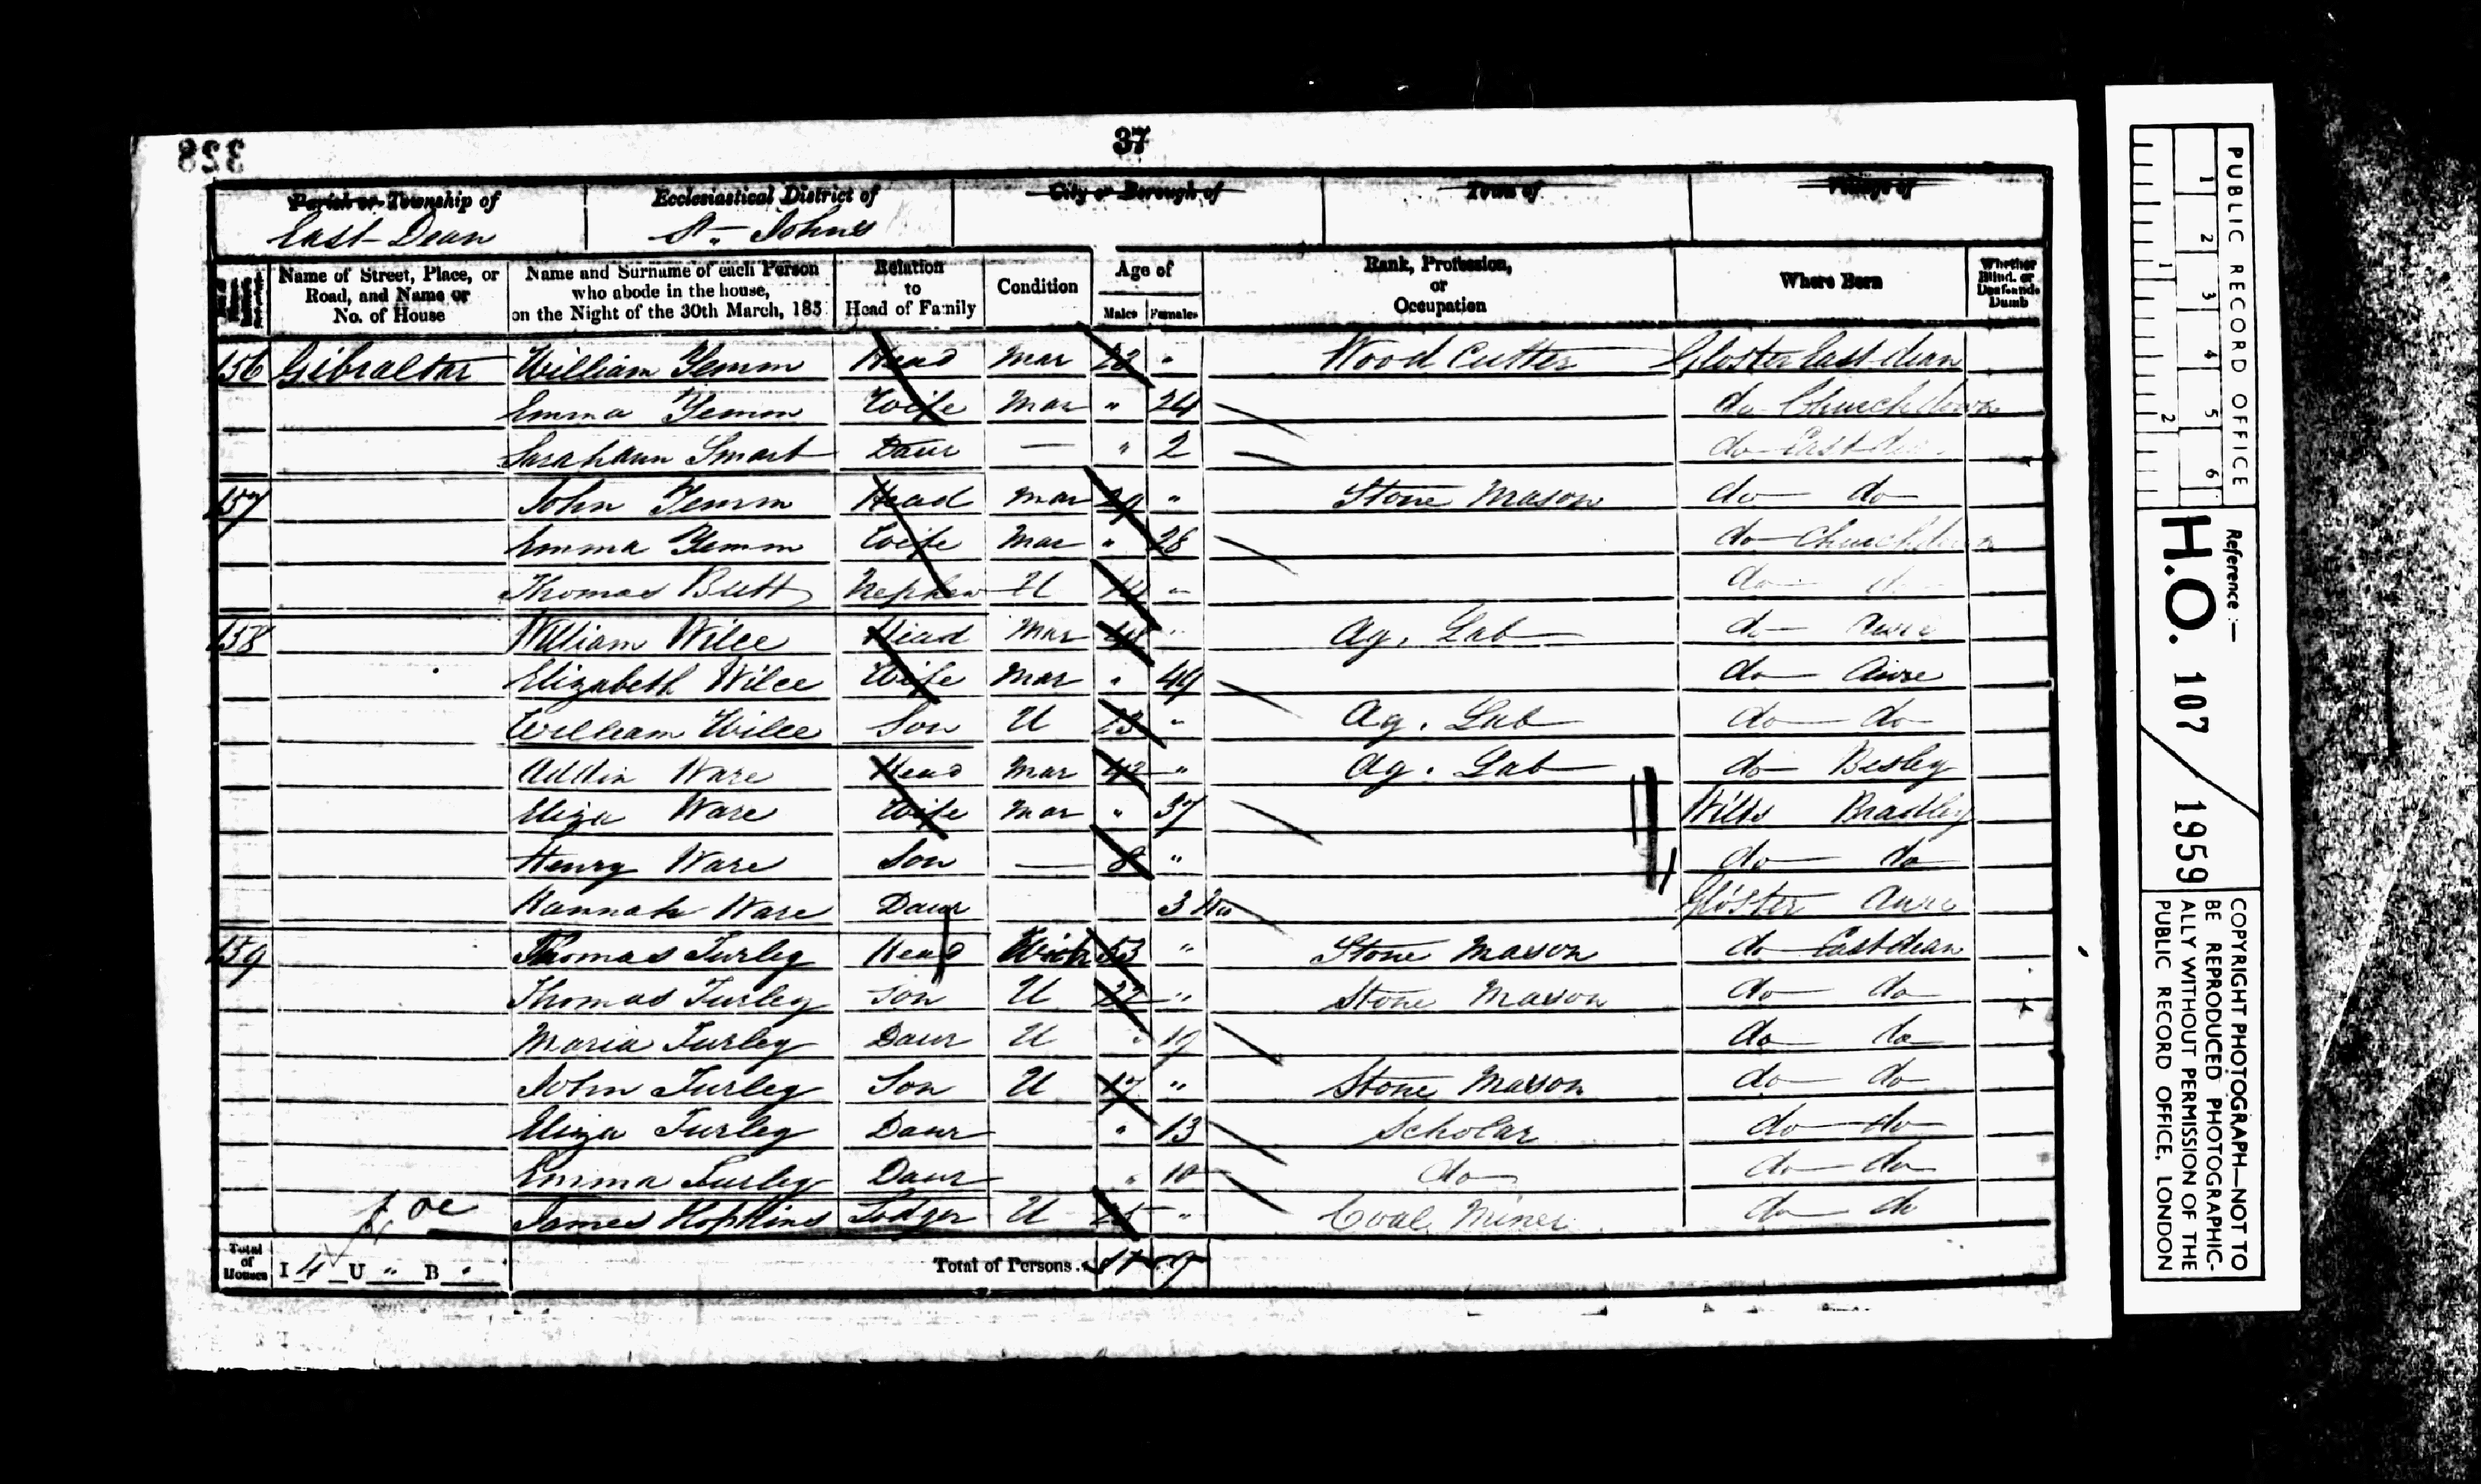 37
328
Parish or Township of Ecclesiastical District of City or Borough of Town of Village of
East Dean St Johns
Name of Street, Place, or Road, and Name or No. of House
Name and Surname of each Person who abode in the house, on the Night of the 30th March, 185
Relation to Head of Family
Condition
Age of
Males Females
Rank, Profession, or Occupation
Where Born
Whether Blind, or Deaf-and-Dumb
156 Gibraltar William Yemm Head Mar " Wood Cutter Gloster East dean
Emma Yemm Wife Mar " 24 do Churchdown
Sarahann Smart Daur — " 2 do East
157 John Yemm Head Mar 29 " Stone Mason do do
Emma Yemm Wife Mar " 28 do Churchdown
Thomas Butt Nephew U " do
158 William Wilce Head Mar " Ag. Lab do Awre
Elizabeth Wilce Wife Mar " 49 do Awre
William Wilce Son U 23 " Ag. Lab do do
Ware Head Mar 42 " Ag. Lab do Besley
Eliza Ware Wife Mar " 37 Wilts Bradley
Henry Ware Son — 8 " do do
Hannah Ware Daur 3 Mo Gloster Awre
159 Thomas Turley Head 53 " Stone Mason do East dean
Thomas Turley Son U 22 " Stone Mason do do
Maria Turley Daur U " 19 do do
John Turley Son U 17 " Stone Mason do do
Eliza Turley Daur " 13 Scholar do do
Emma Turley Daur " 10 do do do
James Hopkins Lodger U " Coal Miner do do
Total of Houses I 4 U " B " Total of Persons
PUBLIC RECORD OFFICE
1 2 3 4 5 6
1 2
Reference:—
H.O. 107 / 1959
COPYRIGHT PHOTOGRAPH—NOT TO
BE REPRODUCED PHOTOGRAPHIC-
ALLY WITHOUT PERMISSION OF THE
PUBLIC RECORD OFFICE, LONDON